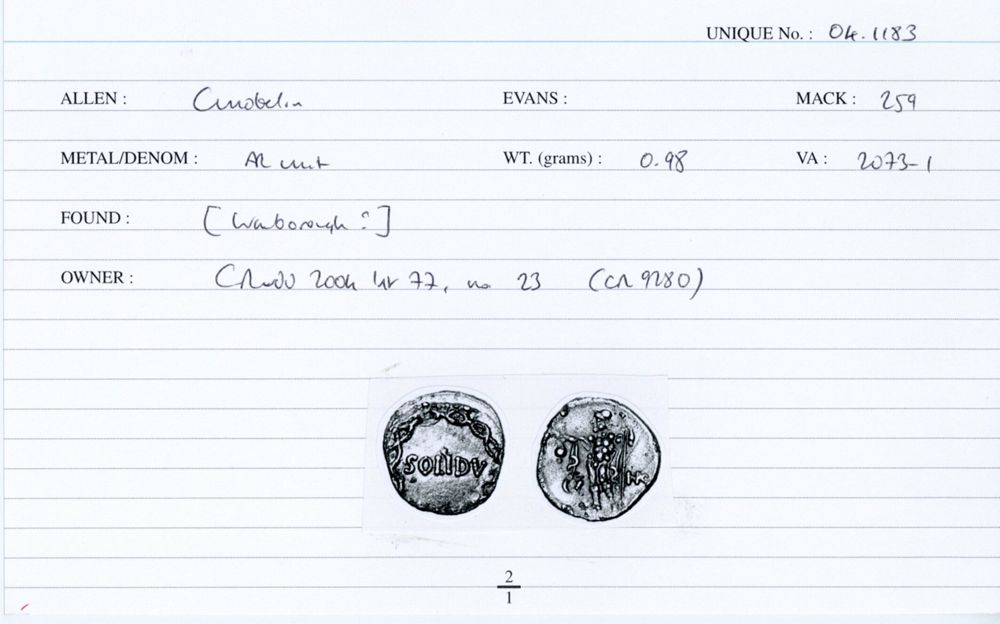 UNIQUE No. : 04.1183
ALLEN : Cunobelin EVANS : MACK : 259
METAL/DENOM : AR unit WT. (grams) : 0.98 VA : 2073-1
FOUND : [Warborough?]
OWNER : 2004 list 77, no 23 (CR 9280)
SOLIDV
2
1